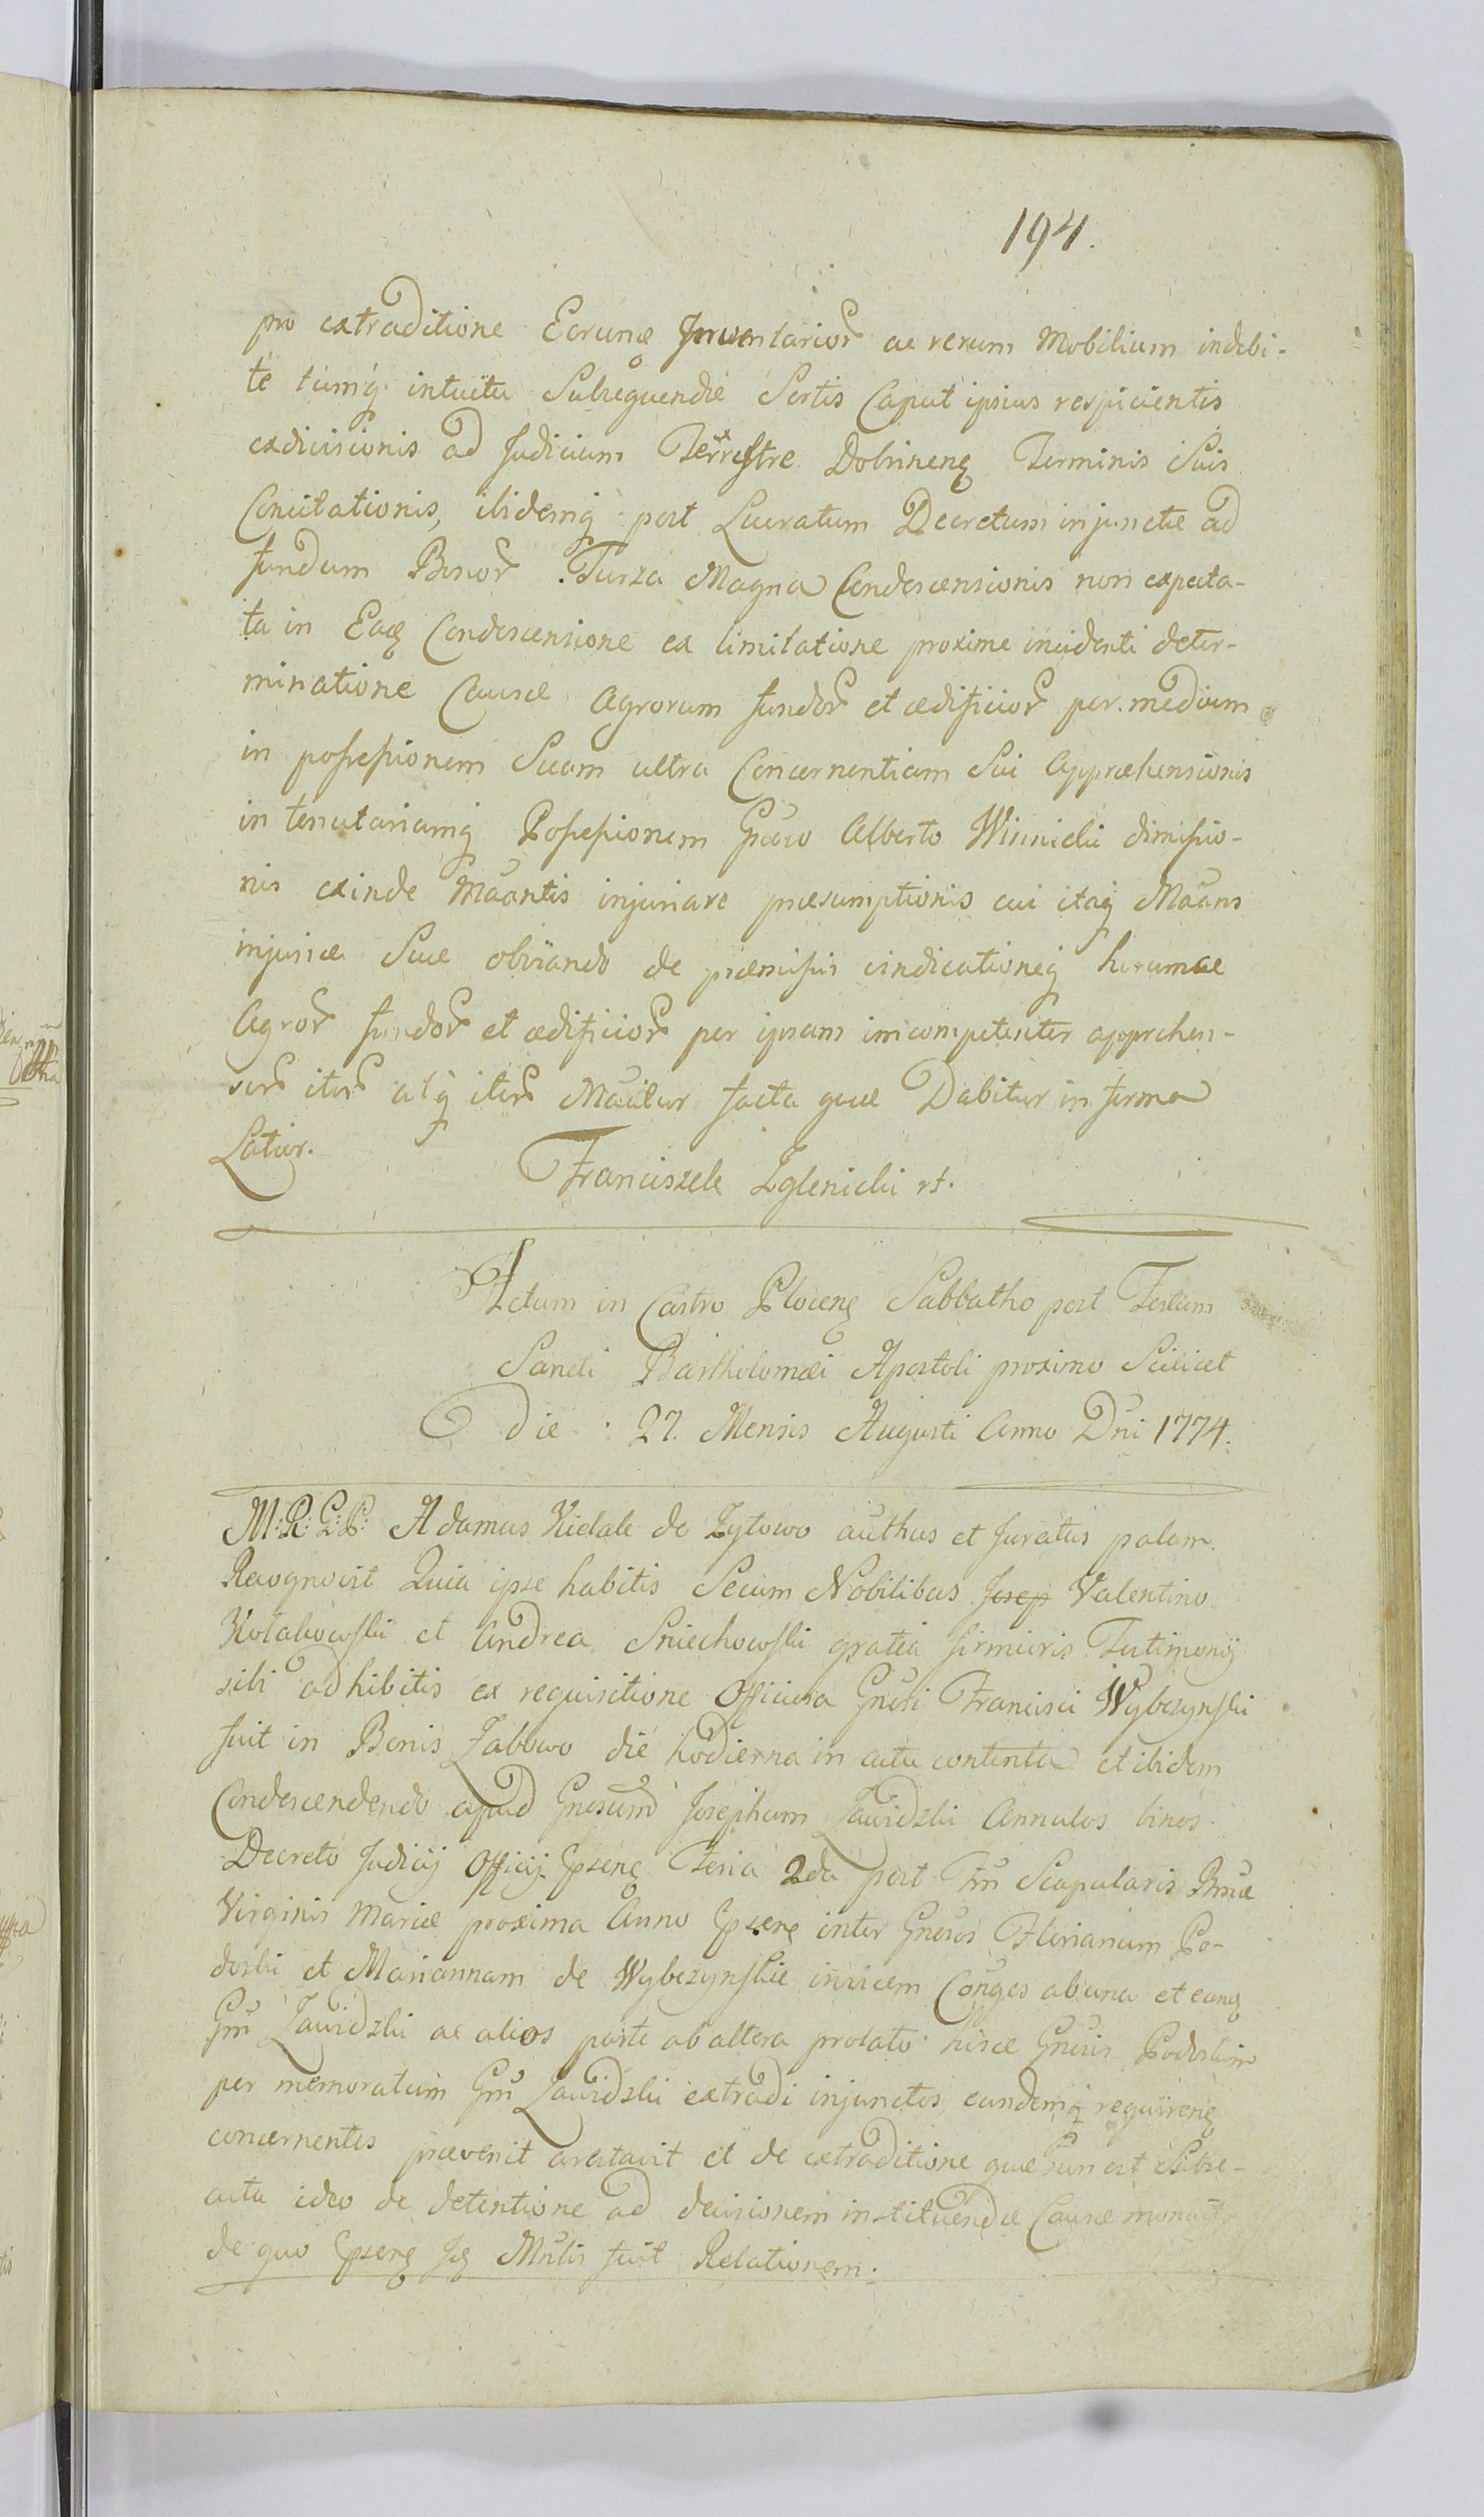 194.
pro extraditione Earunq Inventarior ac rerum Mobilium indebi-
te tumq intuitu Subsequendie Sortis Caput ipsius respicientis
exdivisionis ad Judicium Terrestre Dobrinenq Terminis Suis
Concitationis, ibidemq post Lucratum Decretum injunctæ ad
fundum Bonor Turza Magna Condescensionis non expecta-
ta in Eaq Condescensione ex limitatione proxime incidenti deter-
minatione Causæ Agrorum fundor et ædificior per medium
in possessionem Suam ultra Concernentiam Sui Appræhensionis
in tenutariamq Possessionem Alberto Winnicki dimissio-
nis exinde Mãantis injuriare præsumptionis cui itaq Mãans
injuriæ Suæ obviando de præmissis vindicationeq harumce
Agror fundor et ædificior per ipsum incompetenter apprehen-
sor itor atq iter Mãitur facta quæ Dabitur in forma
Latior.
Franciszek Zglenicki rt.
Actum in Castro Plocenq Sabbatho post Festum
Sancti Bartholomæi Apostoli proximo Scilicet
die : 27. Mensis Augusti Anno Dni 1774.
M:R:G:P: Adamus Kielak de Zytowo authus et Juratus palam
Recognovit Quia ipse habitis Secum Nobilibus Josep Valentino
Kotakowski et Andrea Sniechowski gratia firmioris Testimonij
sibi adhibitis ex requisitione Officiosa Gnosi Francisci Wybczynski
fuit in Bonis Zabowo die hodierna in actu contenta et ibidem
Condescendendo apud Gnosum Josephum Zawidzki Annulos binos
Decreto Judicij Officij Gpsenq Feria 2da post Fm Scapularis Bmæ
Virginis Mariæ proxima Anno Gpsenq inter Gnosos Florianum Po-
doski et Mariannam de Wybczynskie invicem Conges ab una et eunq
Gm Zawidzki ac alios parte ab altera prolato hisce Gnosis Podoskim
per memoratum Gm Zawidzki extradi injunctos eundemq requirenq
concernentes prævenit arestavit et de extraditione quæ non est Subse-
cuta ideo de detentione ad decisionem instituendæ Causæ monuit
de quo Gpsenq Jq Mnlis fuit Relationem.